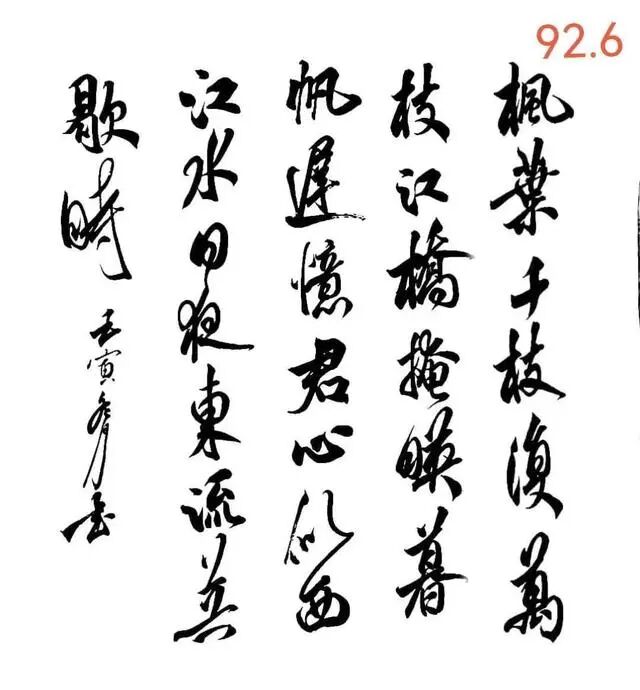 92.6
楓葉千枝復萬
枝江橋掩暎暮
帆遲憶君心似西
江水日夜東流無
歇時 壬寅 書